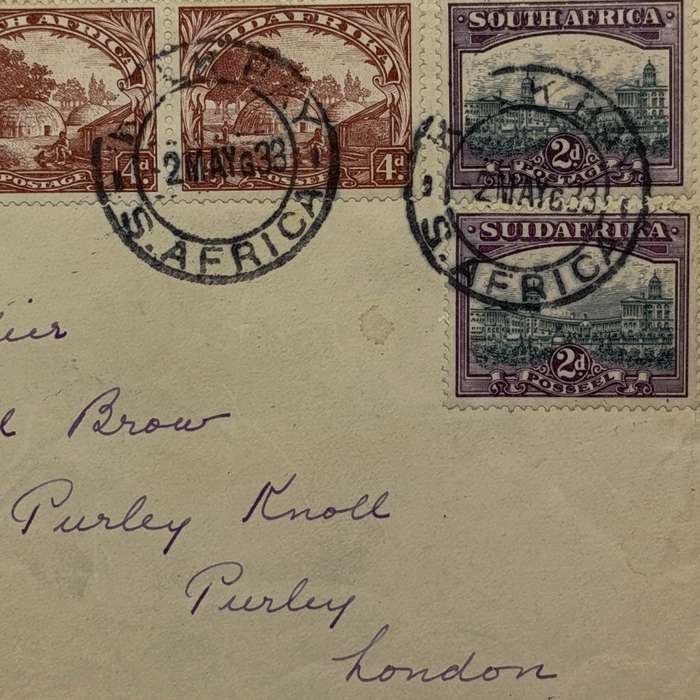 H AFRICA
POSTAGE
4d
SUIDAFRIKA
4d
SOUTH AFRICA
2d
POSTAGE
SUIDAFRIKA
2d
POSSEEL
2 MAY 33
S. AFRICA
2 MAY 33
S. AFRICA
Brow
Purley Knoll
Purley
London